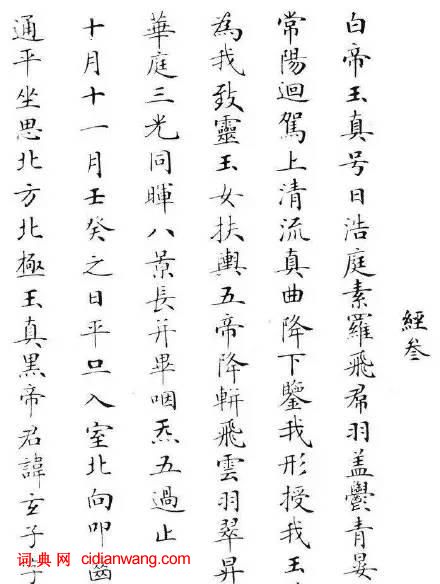 經叁
白帝玉真号曰浩庭素羅飛君羽盖鬱青晏
常陽迴駕上清流真曲降下鑒我形授我玉
為我致靈玉女扶輿五帝降軿飛雲羽翠昇
華庭三光同暉八景長并畢咽炁五過止
十月十一月壬癸之日平旦入室北向叩齒
通平坐思北方北極玉真黑帝君諱玄子字
词典网 cidianwang.com